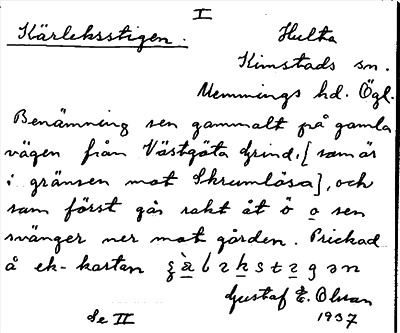 I
Kärleksstigen. Hulta
Kimstads sn.
Memmings hd. Ögl.
Benämning sen gammalt på gamla
vägen från Västgöta Grind, [som är
i gränsen mot Skrumlösa], och
som först går rakt åt ö o sen
svänger ner mot gården. Prickad
å ek-kartan
Gustaf E. Olsson
Se II 1937